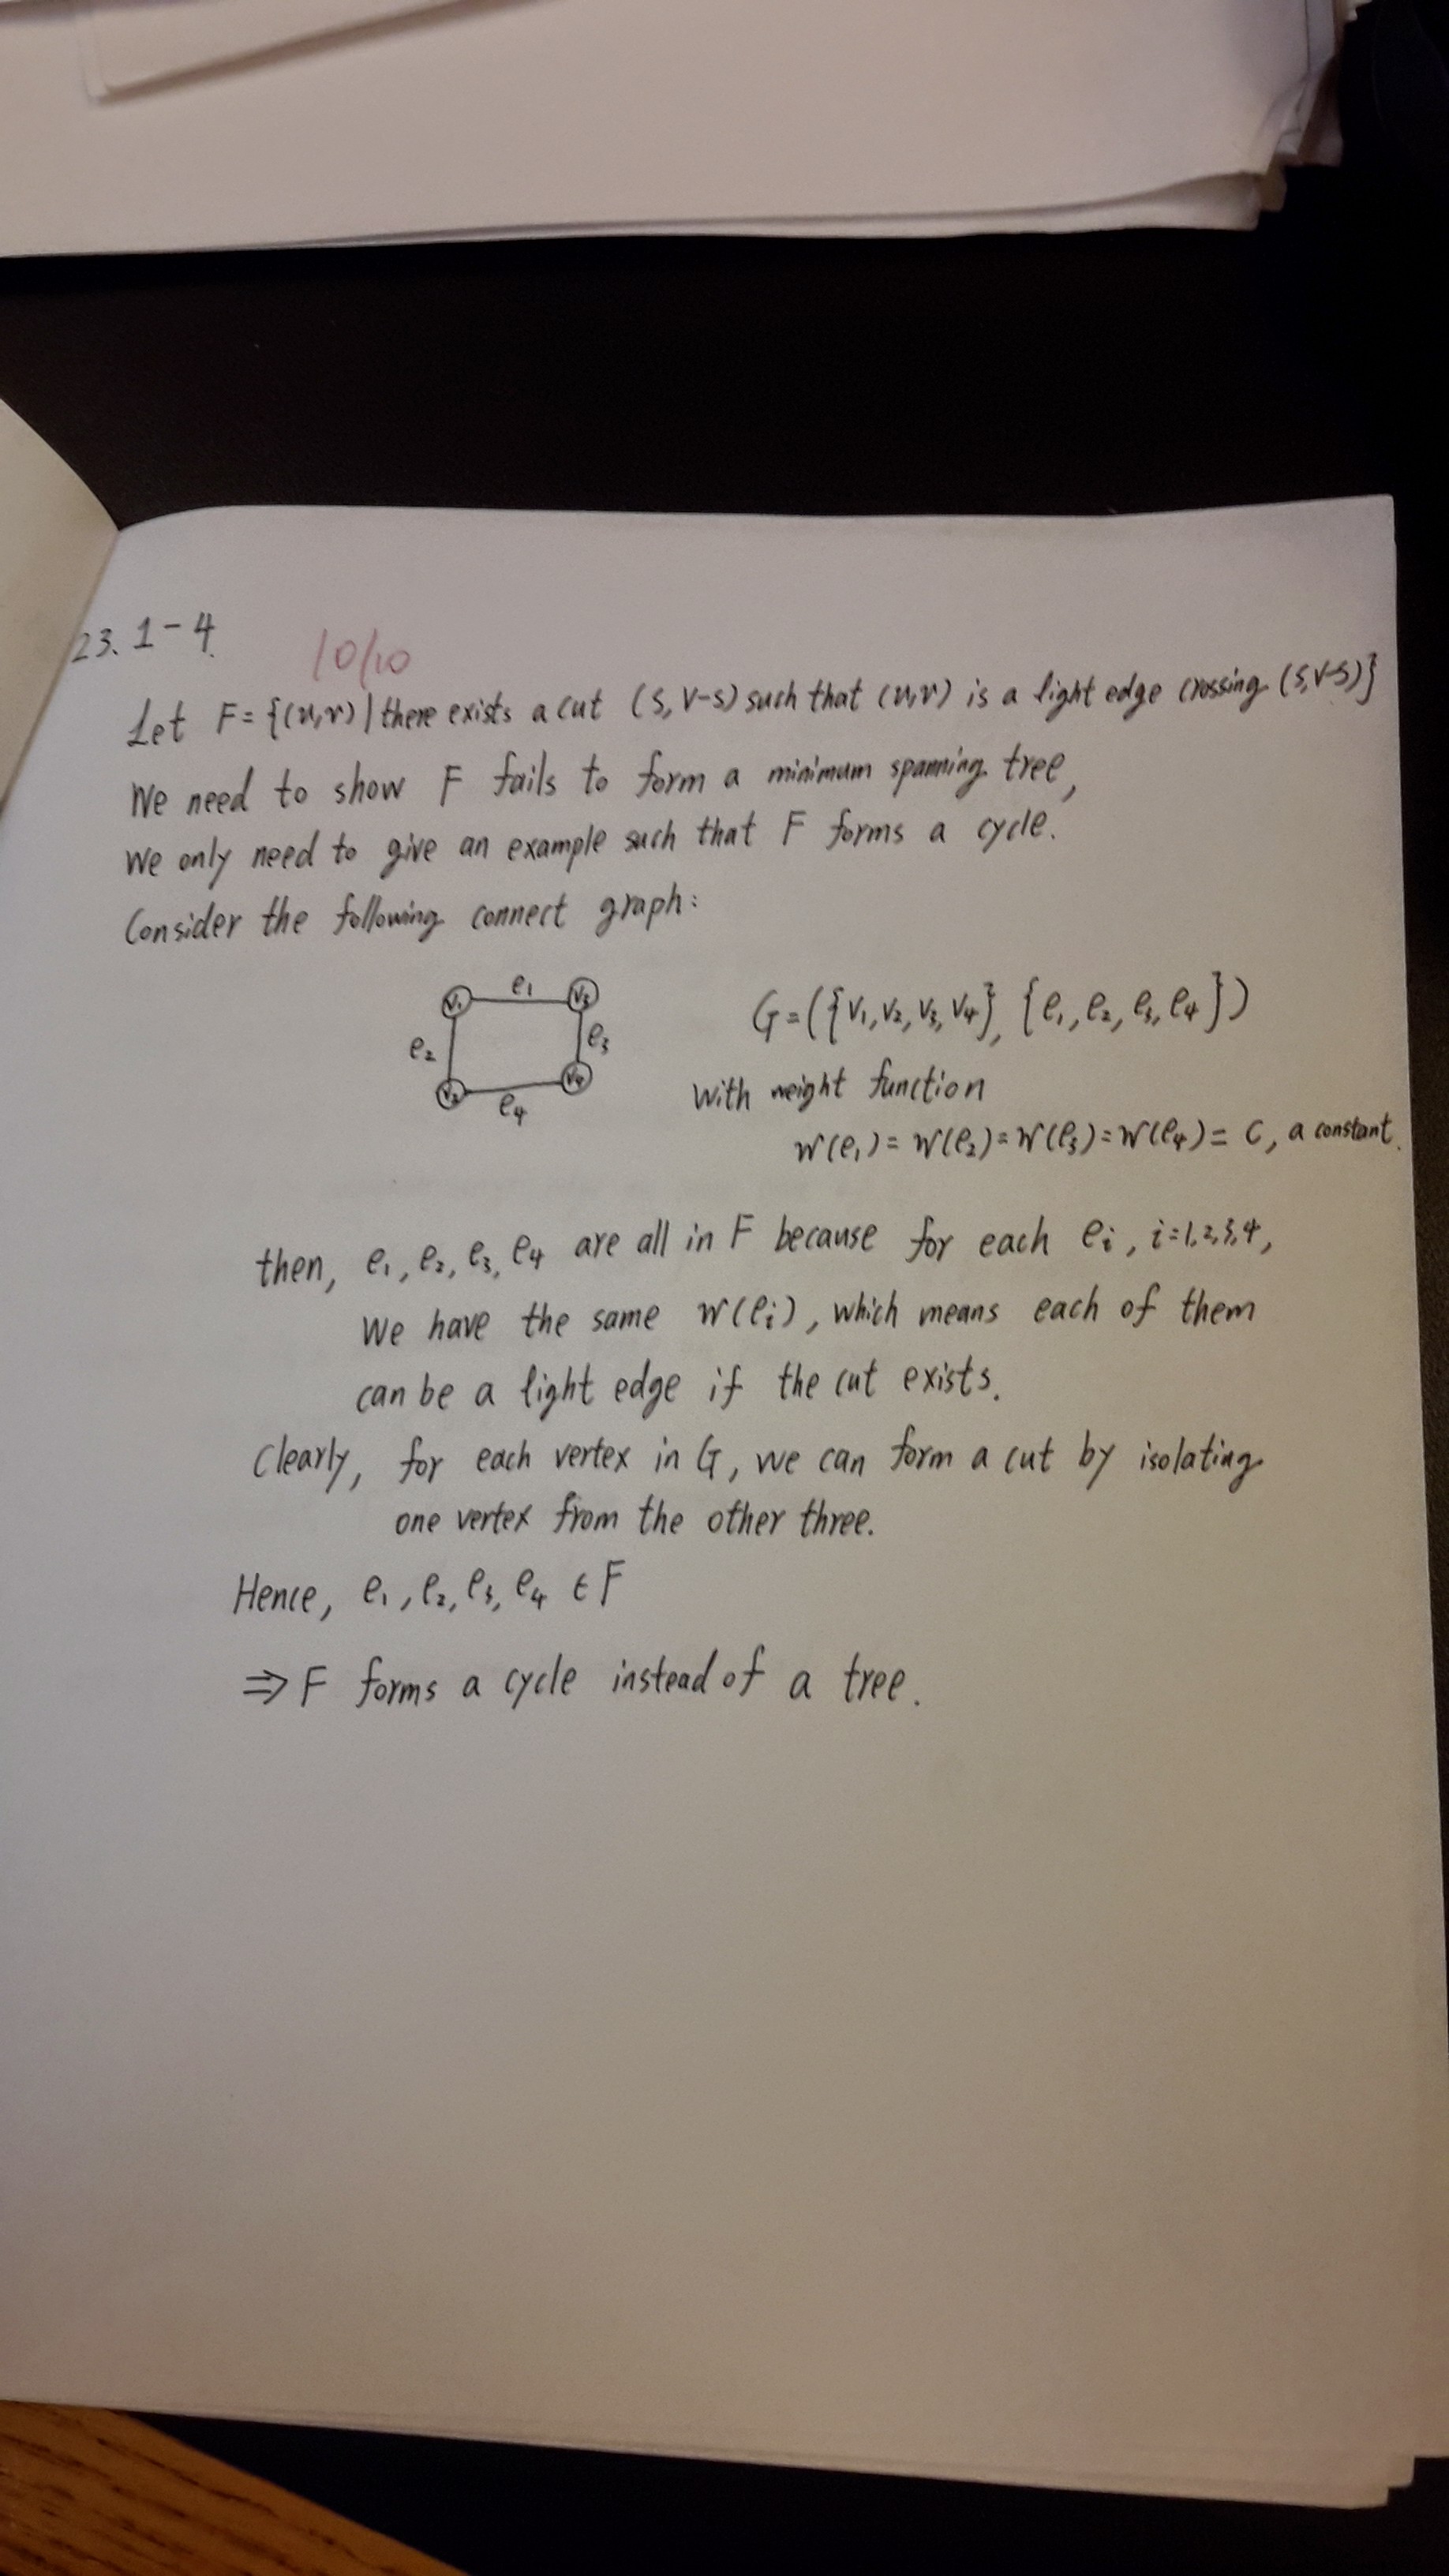 23.1-4.
10/10
Let F = {(u,v) | there exists a cut (S, V-S) such that (u,v) is a light edge crossing (S,V-S)}
We need to show F fails to form a minimum spanning tree,
we only need to give an example such that F forms a cycle.
Consider the following connect graph:
v₁ e₁ v₃
e₂ e₃
v₂ e₄ v₄
G=({v₁,v₂,v₃,v₄}, {e₁,e₂,e₃,e₄})
with weight function
w(e₁)=w(e₂)=w(e₃)=w(e₄)= c, a constant.
then, e₁,e₂,e₃,e₄ are all in F because for each eᵢ, i=1,2,3,4,
We have the same w(eᵢ), which means each of them
can be a light edge if the cut exists.
Clearly, for each vertex in G, we can form a cut by isolating
one vertex from the other three.
Hence, e₁,e₂,e₃,e₄ ∈ F
⇒ F forms a cycle instead of a tree.